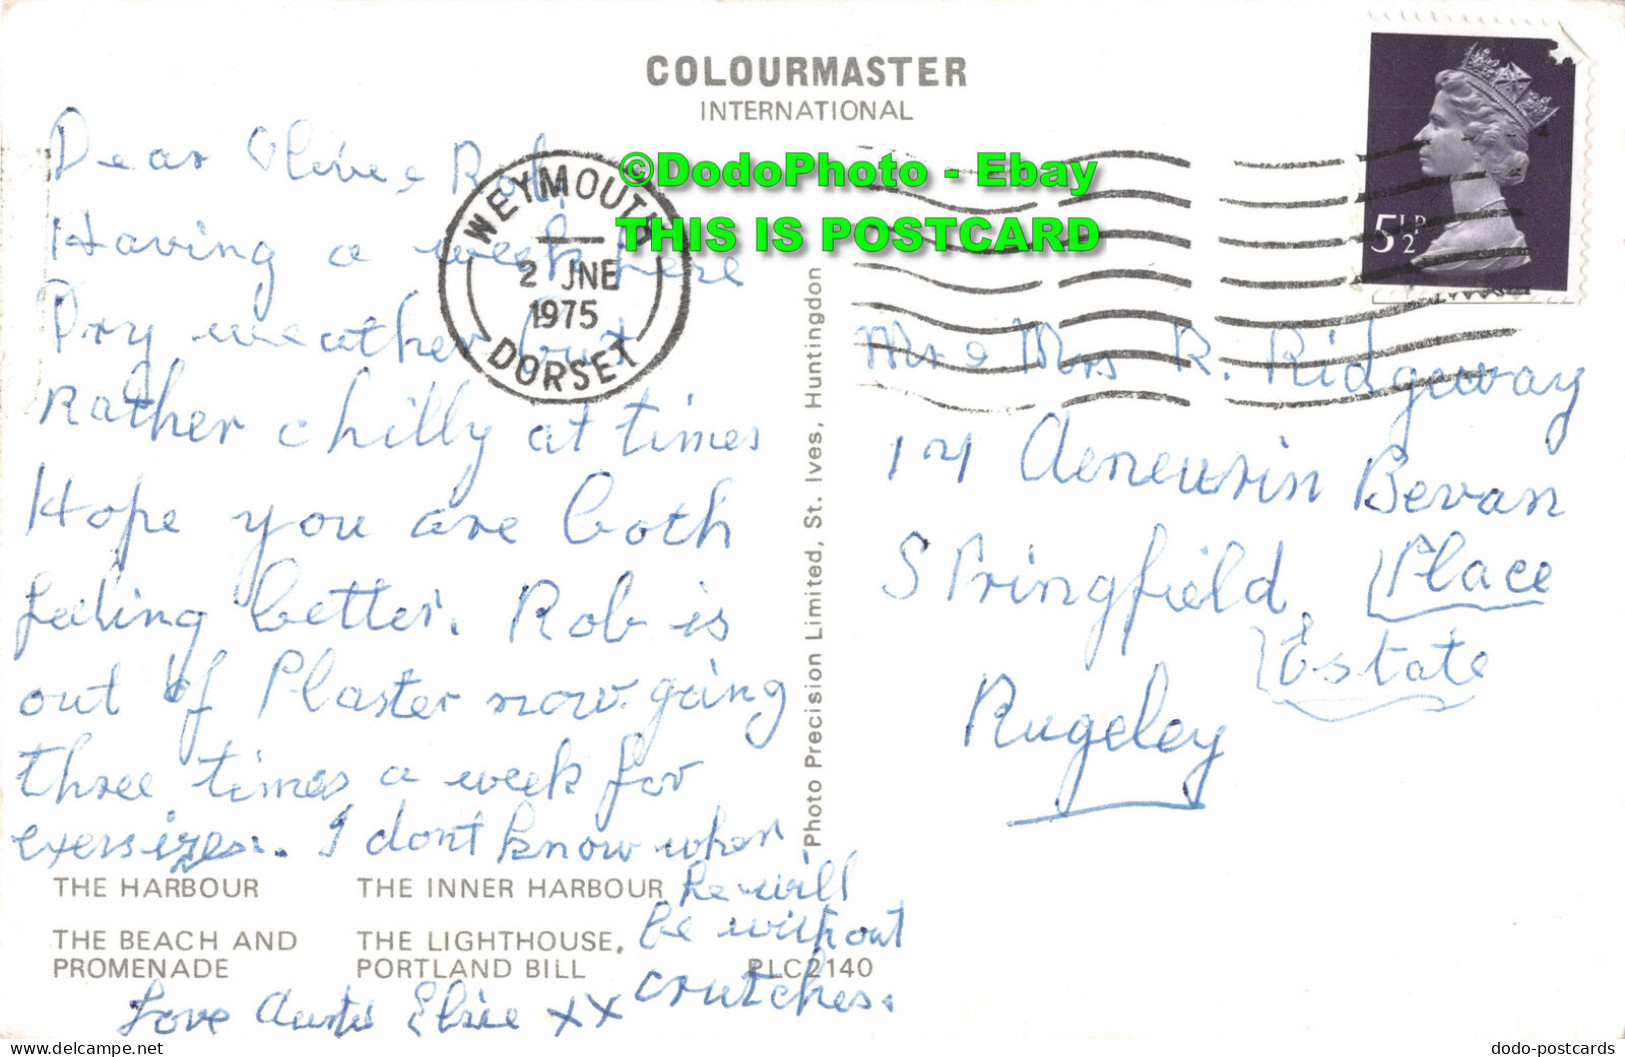 COLOURMASTER
INTERNATIONAL
©DodoPhoto - Ebay
THIS IS POSTCARD
WEYMOUTH
2 JNE
1975
DORSET
5½P
Dear Olive & Rob
Having a week here
Dry weather but
Rather chilly at times
Hope you are both
feeling better. Rob is
out of Plaster now. going
three times a week for
exersizes. I dont know when
he will
be without
crutches.
Love Auntie Elsie xx
Photo Precision Limited, St. Ives, Huntingdon
Mr & Mrs R. Ridgeway
Aeneurin Bevan
Place
Springfield.
Estate
Rugeley
THE HARBOUR THE INNER HARBOUR
THE BEACH AND THE LIGHTHOUSE,
PROMENADE PORTLAND BILL PLC2140
dodo-postcards
www.delcampe.net